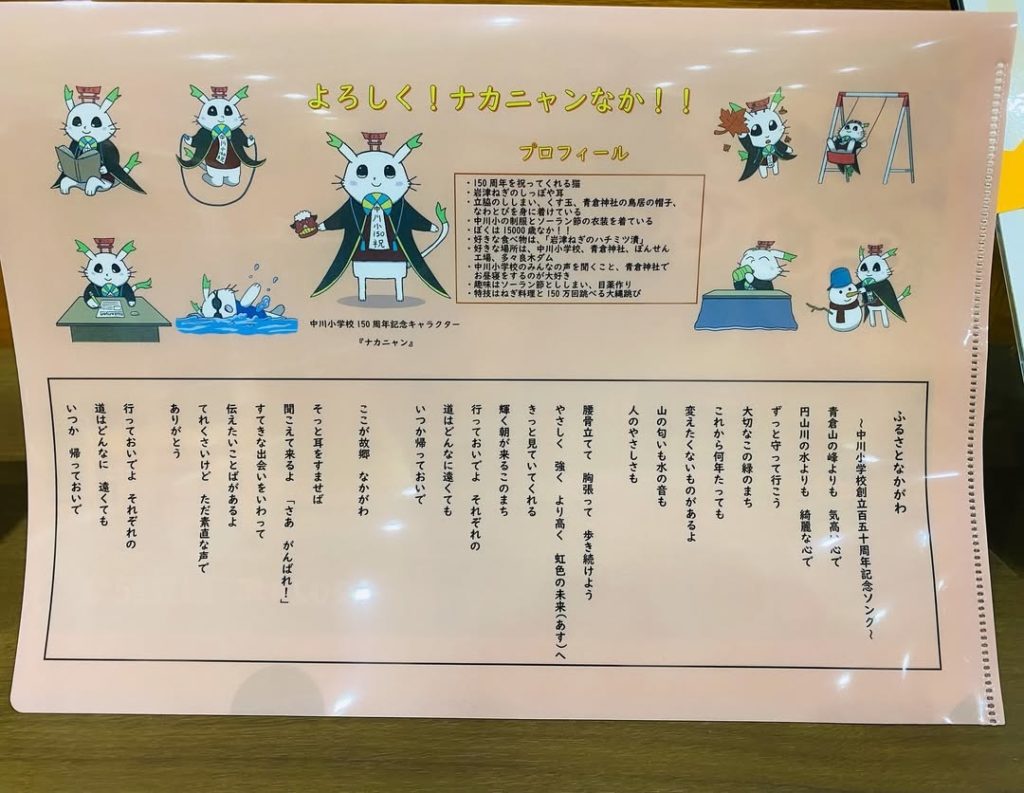 よろしく！ナカニャンなか！！
プロフィール
・150周年を祝ってくれる猫
・岩津ねぎのしっぽや耳
・立脇のししまい、くす玉、青倉神社の鳥居の帽子、
なわとびを身に着けている
・中川小の制服とソーラン節の衣装を着ている
・ぼくは15000歳なか！！
・好きな食べ物は、「岩津ねぎのハチミツ漬」
・好きな場所は、中川小学校、青倉神社、ぽんせん
工場、多々良木ダム
・中川小学校のみんなの声を聞くこと、青倉神社で
お昼寝をするのが大好き
・趣味はソーラン節とししまい、目薬作り
・特技はねぎ料理と150万回跳べる大縄跳び
中川小学校150周年記念キャラクター
『ナカニャン』
ふるさとなかがわ
～中川小学校創立百五十周年記念ソング～
青倉山の峰よりも　気高い心で
円山川の水よりも　綺麗な心で
ずっと守って行こう
大切なこの緑のまち
これから何年たっても
変えたくないものがあるよ
山の匂いも水の音も
人のやさしさも
腰骨立てて　胸張って　歩き続けよう
やさしく　強く　より高く　虹色の未来(あす)へ
きっと見ていてくれる
輝く朝が来るこのまち
行っておいでよ　それぞれの
道はどんなに遠くても
いつか帰っておいで
ここが故郷　なかがわ
そっと耳をすませば
聞こえて来るよ　「さあ　がんばれ！」
すてきな出会いをいわって
伝えたいことばがあるよ
てれくさいけど　ただ素直な声で
ありがとう
行っておいでよ　それぞれの
道はどんなに　遠くても
いつか　帰っておいで